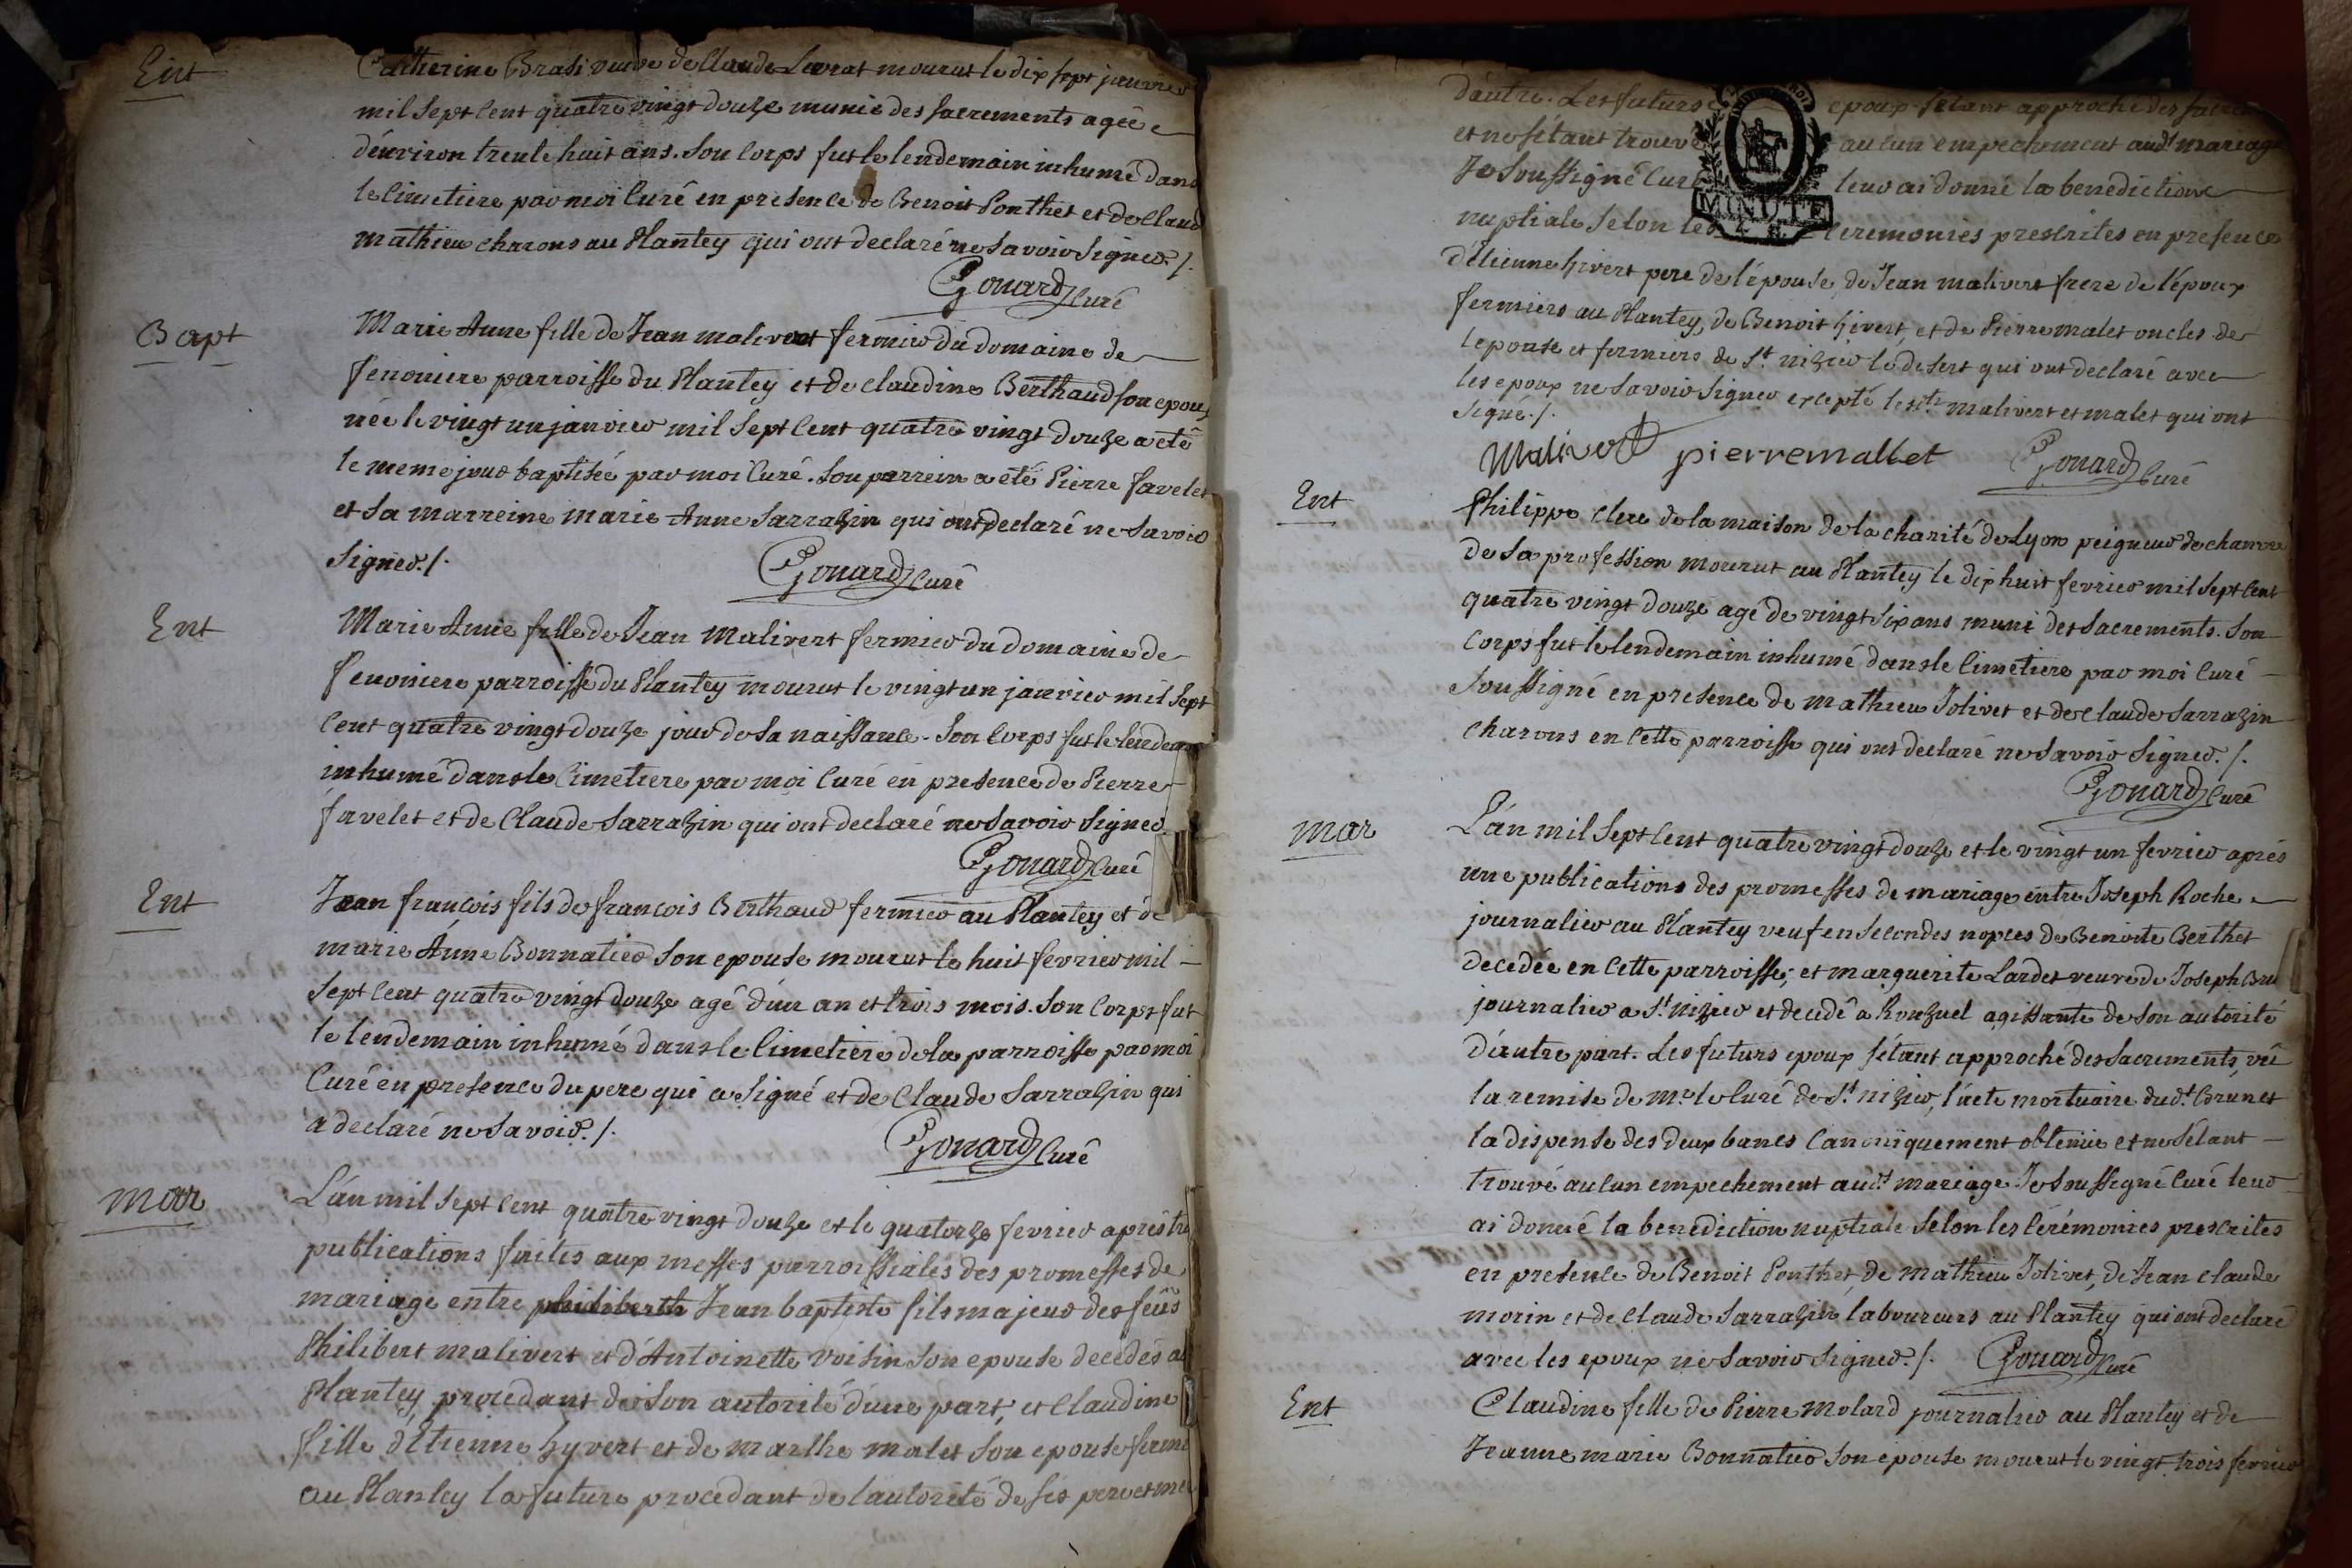 Ent
Catherine Brasi veuve de Claude Levrat mourut le dix sept janvier
mil sept cent quatre vingt douze munie des sacrements agée
d'environ trente huit ans. Son corps fut le lendemain inhumé dans
le cimetiere par moi curé en presence de Benoit Ponthet et de Claud
mathieu charons au Plantey qui ont declaré ne savoir signer./.
Gonard curé
Bapt
Marie Anne fille de Jean malivert fermier du domaine de
fenoniere parroisse du Plantey et de claudine Berthaud son epou
née le vingt un janvier mil sept cent quatre vingt douze a eté
le meme jour baptisée par moi curé. Son parrein a eté Pierre favelet
et sa marreine marie Anne Sarrazin qui ont declaré ne savoir
signer./.
Gonard curé
Ent
Marie Anne fille de Jean Malivert fermier du domaine de
fenoniere parroisse du Plantey mourut le vingt un janvier mil sept
cent quatre vingt douze jour de sa naissance. Son corps fut le lendem
inhumé dans le cimetiere par moi curé en presence de Pierre
favelet et de Claude Sarrazin qui ont declaré ne savoir signer
Gonard curé
Ent
Jean françois fils de françois Berthaud fermier au Plantey et de
marie Anne Bonnatier son epouse mourut le huit fevrier mil
sept cent quatre vingt douze agé d'un an et trois mois. Son corps fut
le lendemain inhumé dans le cimetiere de la parroisse par moi
Curé en presence du pere qui a signé et de Claude Sarrazin qui
a declaré ne savoir./.
Gonard curé
mar
L'an mil sept cent quatre vingt douze et le quatorze fevrier après tr
publications faites aux messes parroissiales des promesses de
mariage entre philiberth Jean baptiste fils majeur des feûs
Philibert malivert et d'Antoinette voisin son epouse decedés a
Plantey, procedant de son autorité d'une part, et Claudine
fille d'Etienne hyvert et de marthe malet son epouse fermi
au Plantey la future procedant de l'autorité de ses pere et me
d'autre. Les futurs epoux s'étant approché des sacre
et ne s'étant trouvé aucun empechement aud.t mariage
Je soussigné curé leur ai donné la benediction
nuptiale selon les ceremonies prescrites en presence
MINUTE
d'étienne hivert pere de l'épouse, de Jean malivert frere de l'époux
fermiers au Plantey, de Benoit hivert, et de Pierre malet oncles de
l'epouse et fermiers de S.t nizier le desert qui ont declaré avec
les epoux ne savoir signer excepté lesd.ts malivert et malet qui ont
signé./.
Malivert pierre mallet Gonard curé
Ent
Philippe clerc de la maison de la charité de Lyon peigneur de chanvre
de sa profession mourut au Plantey le dix huit fevrier mil sept cent
quatre vingt douze agé de vingt six ans muni des sacrements. Son
corps fut le lendemain inhumé dans le cimetiere par moi curé
soussigné en presence de mathieu Jolivet et de Claude Sarrazin
charons en cette parroisse qui ont declaré ne savoir signer./.
Gonard curé
mar
L'an mil sept cent quatre vingt douze et le vingt un fevrier après
une publication des promesses de mariage entre Joseph Roche
journalier au Plantey veuf en secondes nopces de Benoite Berthet
decedée en cette parroisse, et marguerite Lardet veuve de Joseph Bru
journalier a S.t nizier et decedé a Ronzuel agissante de son autorité
d'autre part. Les futurs epoux s'étant approché des sacrements, vû
la remise de m.r le curé de S.t nizier, l'acte mortuaire dud.t Brunet
la dispense des deux bancs canoniquement obtenüe et ne s'étant
trouvé aucun empechement aud.t mariage Je soussigné curé leur
ai donné la benediction nuptiale selon les cérémonies prescrites
en presence de Benoit Ponthet, de mathieu Jolivet, de Jean claude
morin et de Claude Sarrazin laboureurs au Plantey qui ont declaré
avec les epoux ne savoir signer./. Gonard curé
Ent
Claudine fille de Pierre Molard journalier au Plantey et de
Jeanne marie Bonnatier son epouse mourut le vingt trois fevrier